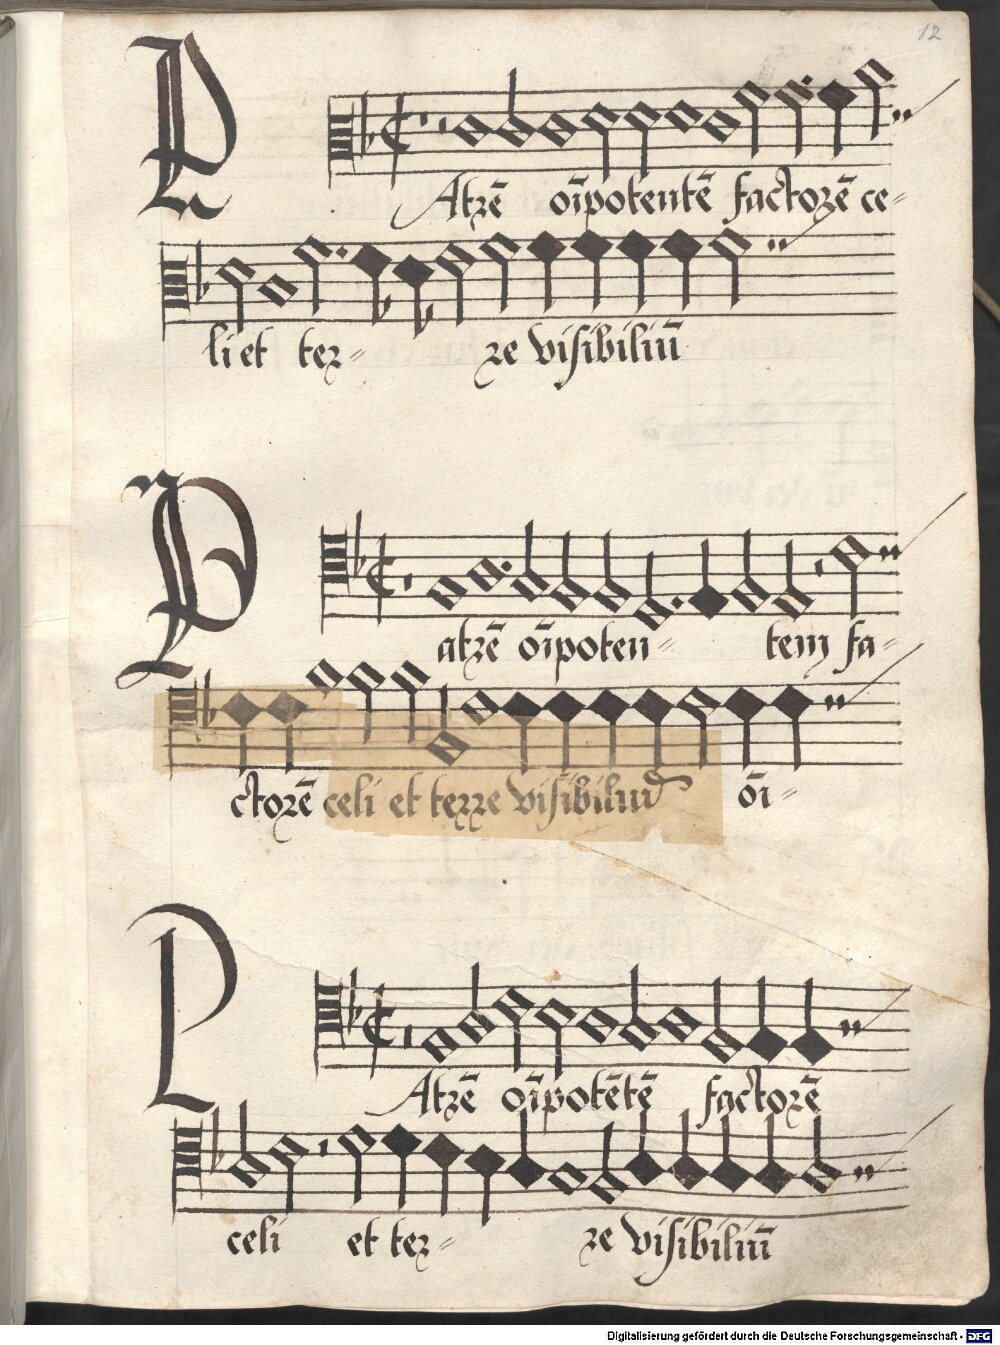 12
PAtrē oīpotentē factorē ce-
li et ter- re visibiliū
Patrē oīpoten- tem fa-
ctorē celi et terre visibiliū oī-
PAtrē oīpotētē factorē
celi et ter- re visibiliū
Digitalisierung gefördert durch die Deutsche Forschungsgemeinschaft - DFG